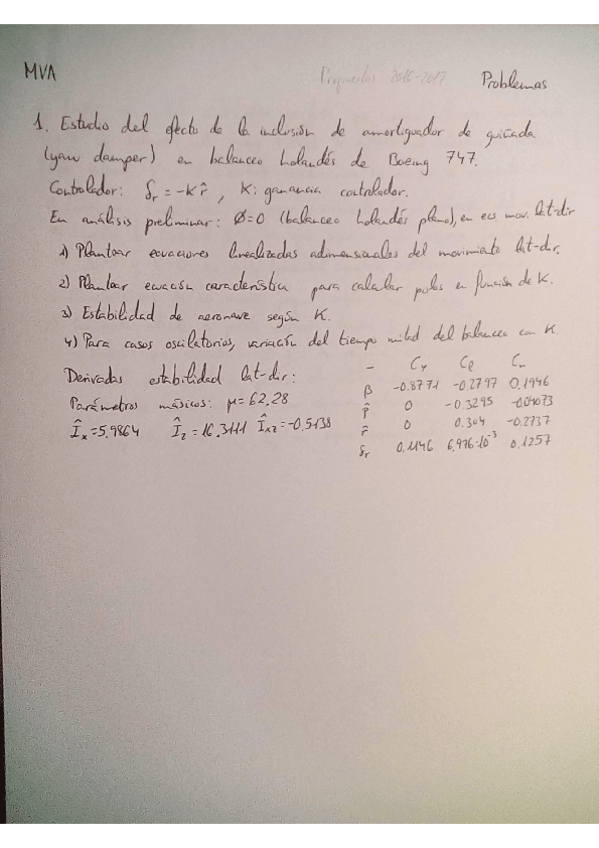 MVA
Propuestos 2016-2017 Problemas
1. Estudio del efecto de la inclusión de amortiguador de guiñada
(yaw damper) en balanceo holandés de Boeing 747.
Controlador: δr = -K r̂ , K: ganancia controlador.
En análisis preliminar: Ø=0 (balanceo holandés plano), en ecs mov. lat-dir
1) Plantear ecuaciones linealizadas adimensionales del movimiento lat-dir.
2) Plantear ecuación característica para calcular polos en función de K.
3) Estabilidad de aeronave según K.
4) Para casos oscilatorios, variación del tiempo mitad del balanceo con K.
Derivadas estabilidad lat-dir:
Parámetros másicos: μ=62.28
Îx=5.9864 Îz=16.3111 Îxz=-0.5138
- CY Cl Cn
β -0.8771 -0.2797 0.1946
p̂ 0 -0.3295 -0.04073
r̂ 0 0.304 -0.2737
δr 0.1146 6.976·10⁻³ 0.1257